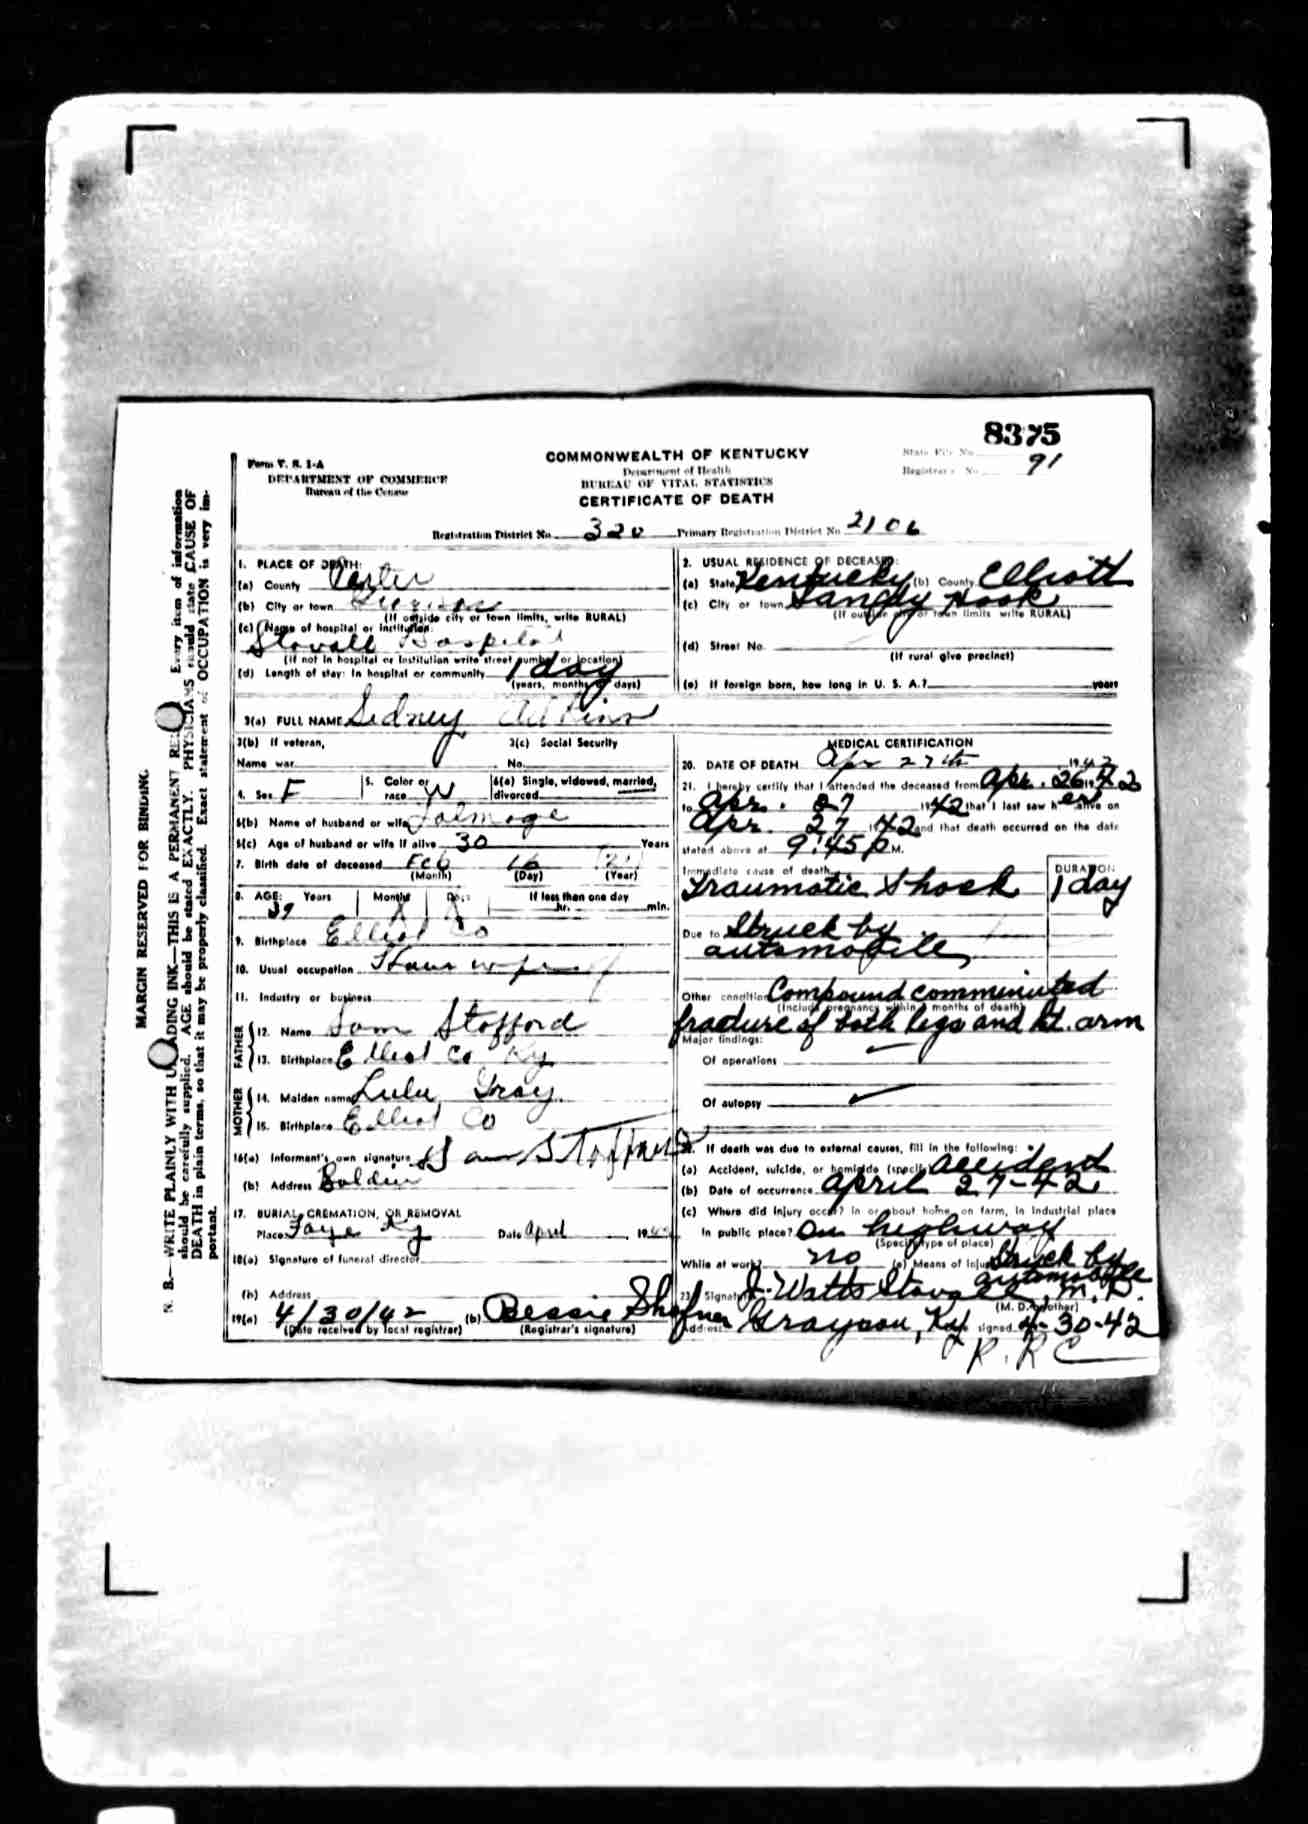 8375
Form V. S. 1-A
DEPARTMENT OF COMMERCE
Bureau of the Census
COMMONWEALTH OF KENTUCKY
Department of Health
BUREAU OF VITAL STATISTICS
CERTIFICATE OF DEATH
State File No.
Registrar's No. 91
Registration District No. 320 Primary Registration District No. 2106
MARGIN RESERVED FOR BINDING.
N. B.—WRITE PLAINLY WITH UNFADING INK—THIS IS A PERMANENT RECORD. Every item of information
should be carefully supplied. AGE should be stated EXACTLY. PHYSICIANS should state CAUSE OF
DEATH in plain terms, so that it may be properly classified. Exact statement of OCCUPATION is very im-
portant.
1. PLACE OF DEATH:
(a) County Carter
(b) City or town
(If outside city or town limits, write RURAL)
(c) Name of hospital or institution:
Stovall Hospital
(If not in hospital or institution write street number or location)
(d) Length of stay: In hospital or community 1 day
(years, months or days)
2. USUAL RESIDENCE OF DECEASED:
(a) State Kentucky (b) County Elliott
(c) City or town Sandy Hook
(If outside city or town limits write RURAL)
(d) Street No.
(If rural give precinct)
(e) If foreign born, how long in U. S. A.? years
3(a) FULL NAME Sidney Adkins
3(b) If veteran,
Name war
3(c) Social Security
No.
4. Sex F
5. Color or
race W
6(a) Single, widowed, married,
divorced
6(b) Name of husband or wife Talmage
6(c) Age of husband or wife if alive 30 Years
7. Birth date of deceased Feb 16
(Month) (Day) (Year)
8. AGE: Years Months Days If less than one day
hr. min.
9. Birthplace Elliot Co
10. Usual occupation
11. Industry or business
FATHER
12. Name Sam Stofford
13. Birthplace Elliot Co Ky
MOTHER
14. Maiden name Lulu Gray
15. Birthplace Elliot Co
16(a) Informant's own signature Sam
(b) Address
17. BURIAL, CREMATION, OR REMOVAL
Place Faye Ky Date April 19
18(a) Signature of funeral director
(b) Address
19(a) 4/30/42 (b) Bessie Shafner
(Date received by local registrar) (Registrar's signature)
MEDICAL CERTIFICATION
20. DATE OF DEATH Apr 27th 1942
21. I hereby certify that I attended the deceased from Apr. 26 1942
to Apr. 27 1942 that I last saw her alive on
Apr 27 1942 and that death occurred on the date
stated above at 9:45 P M.
Immediate cause of death DURATION
Traumatic Shock 1 day
Due to Struck by
automobile
Other conditions Compound comminuted
(Include pregnancy within 3 months of death)
fracture of both legs and Rt. arm
Major findings:
Of operations
Of autopsy
22. If death was due to external causes, fill in the following:
(a) Accident, suicide, or homicide (specify) accident
(b) Date of occurrence April 27-42
(c) Where did injury occur? In or about home, on farm, in industrial place
In public place? On highway
(Specify type of place)
While at work? no (e) Means of Injury Struck by
automobile
23. Signature J. Watts Stovall, M.D.
(M. D. or other)
Address Grayson, Ky. signed 4-30-42
R. R C